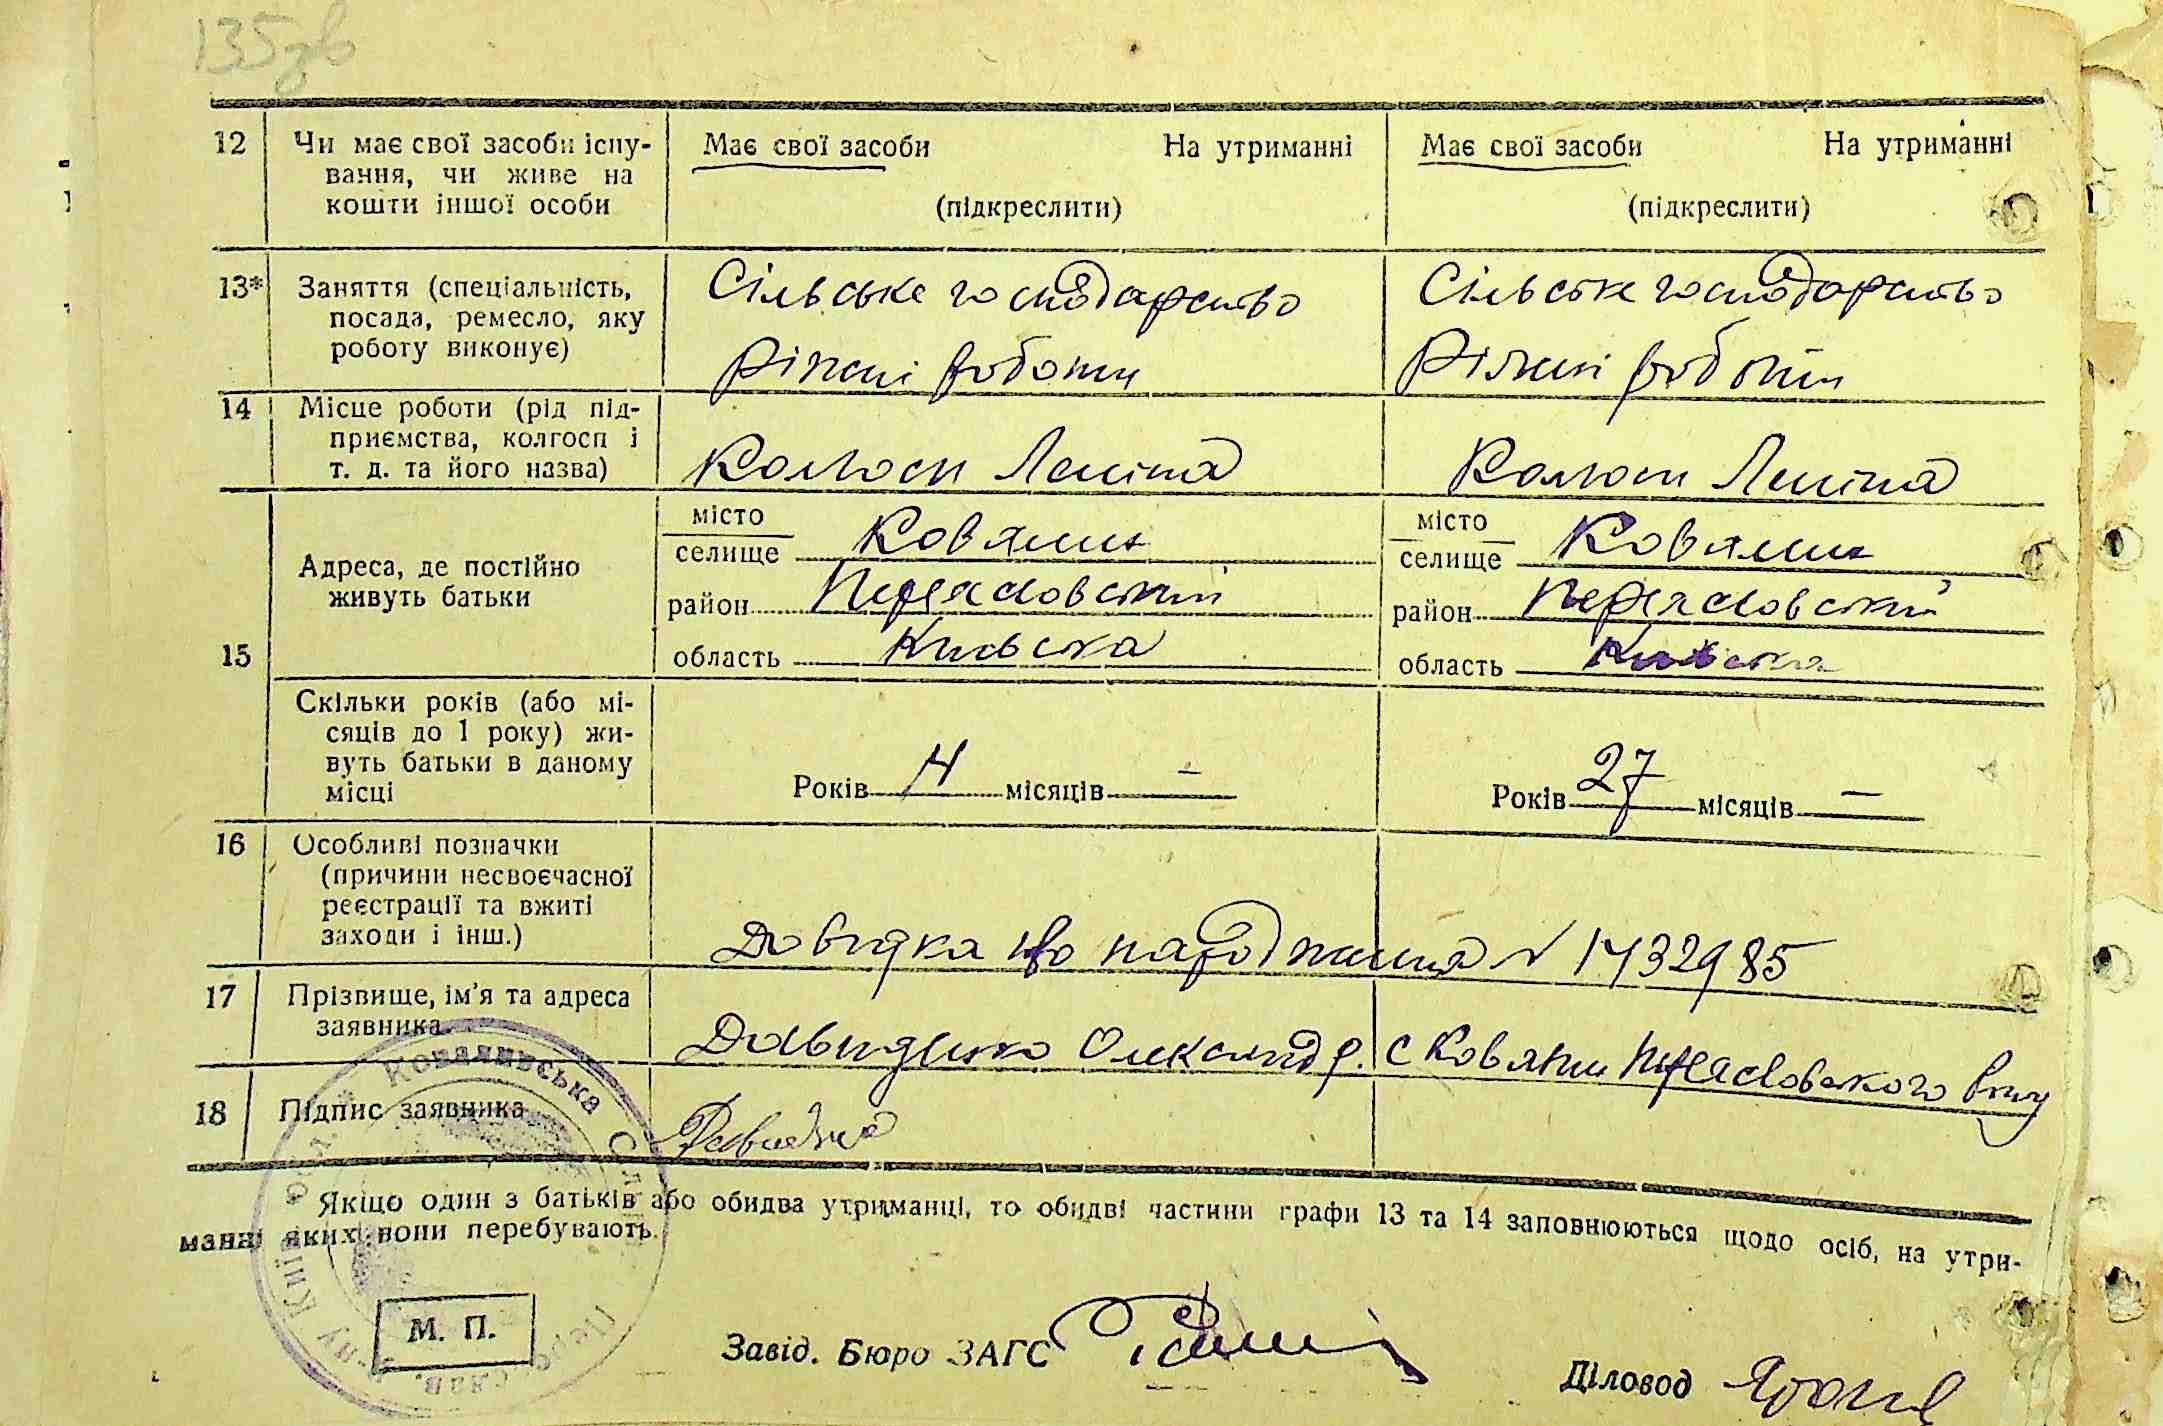 135зв
12 Чи має свої засоби існу-
вання, чи живе на
кошти іншої особи
Має свої засоби На утриманні
(підкреслити)
Має свої засоби На утриманні
(підкреслити)
13* Заняття (спеціальність,
посада, ремесло, яку
роботу виконує)
Сільське господарство
Ріжні роботи
Сільське господарство
Ріжні роботи
14 Місце роботи (рід під-
приємства, колгосп і
т. д. та його назва)
Колгосп Леніна
Колгосп Леніна
15 Адреса, де постійно
живуть батьки
місто
селище Ковалин
район Переяславський
область Київська
місто
селище Ковалин
район Переяславський
область Київська
Скільки років (або мі-
сяців до 1 року) жи-
вуть батьки в даному
місці
Років місяців –
Років 27 місяців –
16 Особливі позначки
(причини несвоєчасної
реєстрації та вжиті
заходи і інш.)
Довидка про народження N 1432985
17 Прізвище, ім'я та адреса
заявника
Давиденко Олександр. с Ковалин
18 Підпис заявника
Якщо один з батьків або обидва утриманці, то обидві частини графи 13 та 14 заповнюються щодо осіб, на утри-
манні яких вони перебувають.
М. П.
Завід. Бюро ЗАГС
Діловод